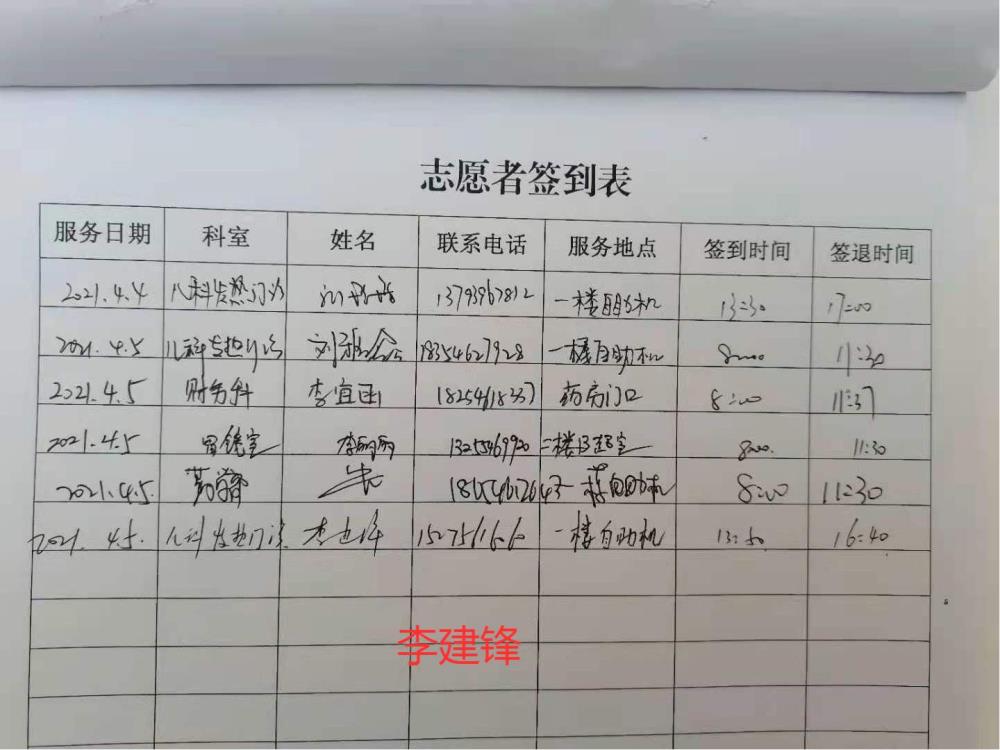 志愿者签到表
服务日期 科室 姓名 联系电话 服务地点 签到时间 签退时间
2021.4.4 儿科发热门诊 13793967812 一楼自助机 13:30 17:00
2021.4.5 儿科发热门诊 18354627928 一楼自助机 8:00 11:30
2021.4.5 财务科 李宜函 药房门口 8:00 11:37
2021.4.5 胃镜室 李丽丽 13255469920 8:00 11:30
2021.4.5 一楼自助机 8:00 11:30
2021.4.5 儿科发热门诊 一楼自助机 13:50 16:40
李建锋